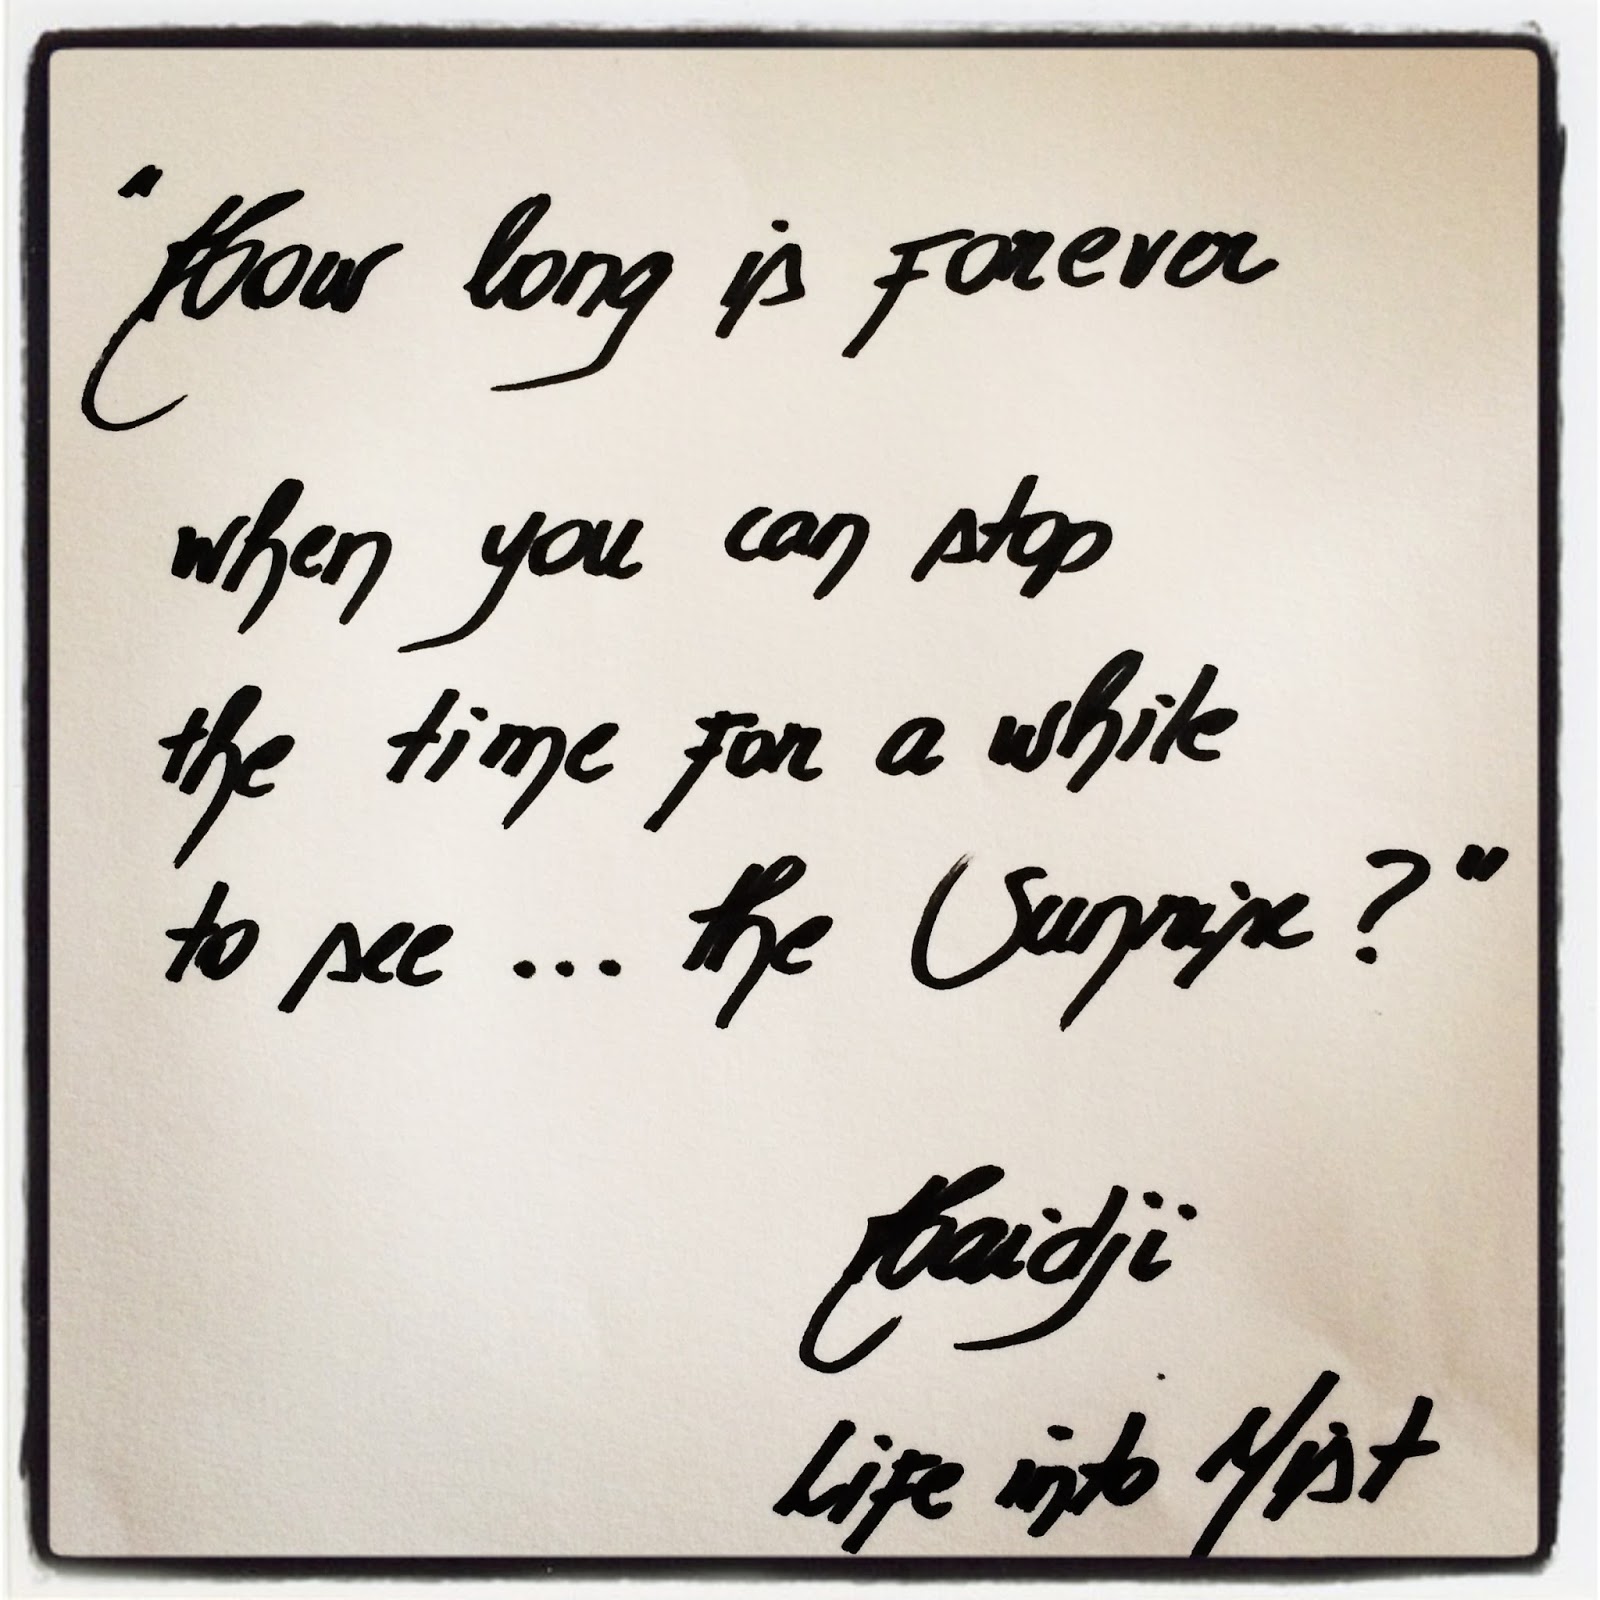 "How long is Forever
when you can stop
the time for a while
to see ... the Surprise?"
Haidji
Life into Mist